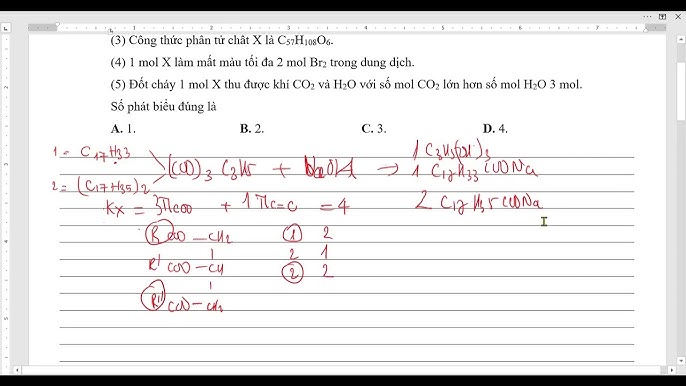 (3) Công thức phân tử chất X là C57H108O6.
(4) 1 mol X làm mất màu tối đa 2 mol Br2 trong dung dịch.
(5) Đốt cháy 1 mol X thu được khí CO2 và H2O với số mol CO2 lớn hơn số mol H2O 3 mol.
Số phát biểu đúng là
A. 1. B. 2. C. 3. D. 4.
1 = C17H33
2 = (C17H35)2
(COO)3 C3H5 + NaOH → 1 C3H5(OH)3
1 C17H33 COONa
2 C17H35 COONa
kx = 3πcoo + 1πc=c = 4
R COO – CH2 1 2
R' COO – CH 2 1
R'' COO – CH2 2 2